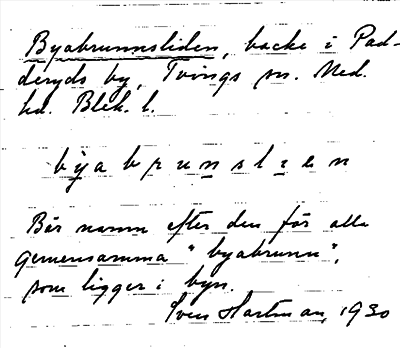 Byabrunnsliden, backe i Pad-
deryds by, Tvings sn. Med.
hd. Blek. l.
byabrunsli̱en
Bär namn efter den för alla
gemensamma "byabrunn",
som ligger i byn.
Sven Hartman, 1930